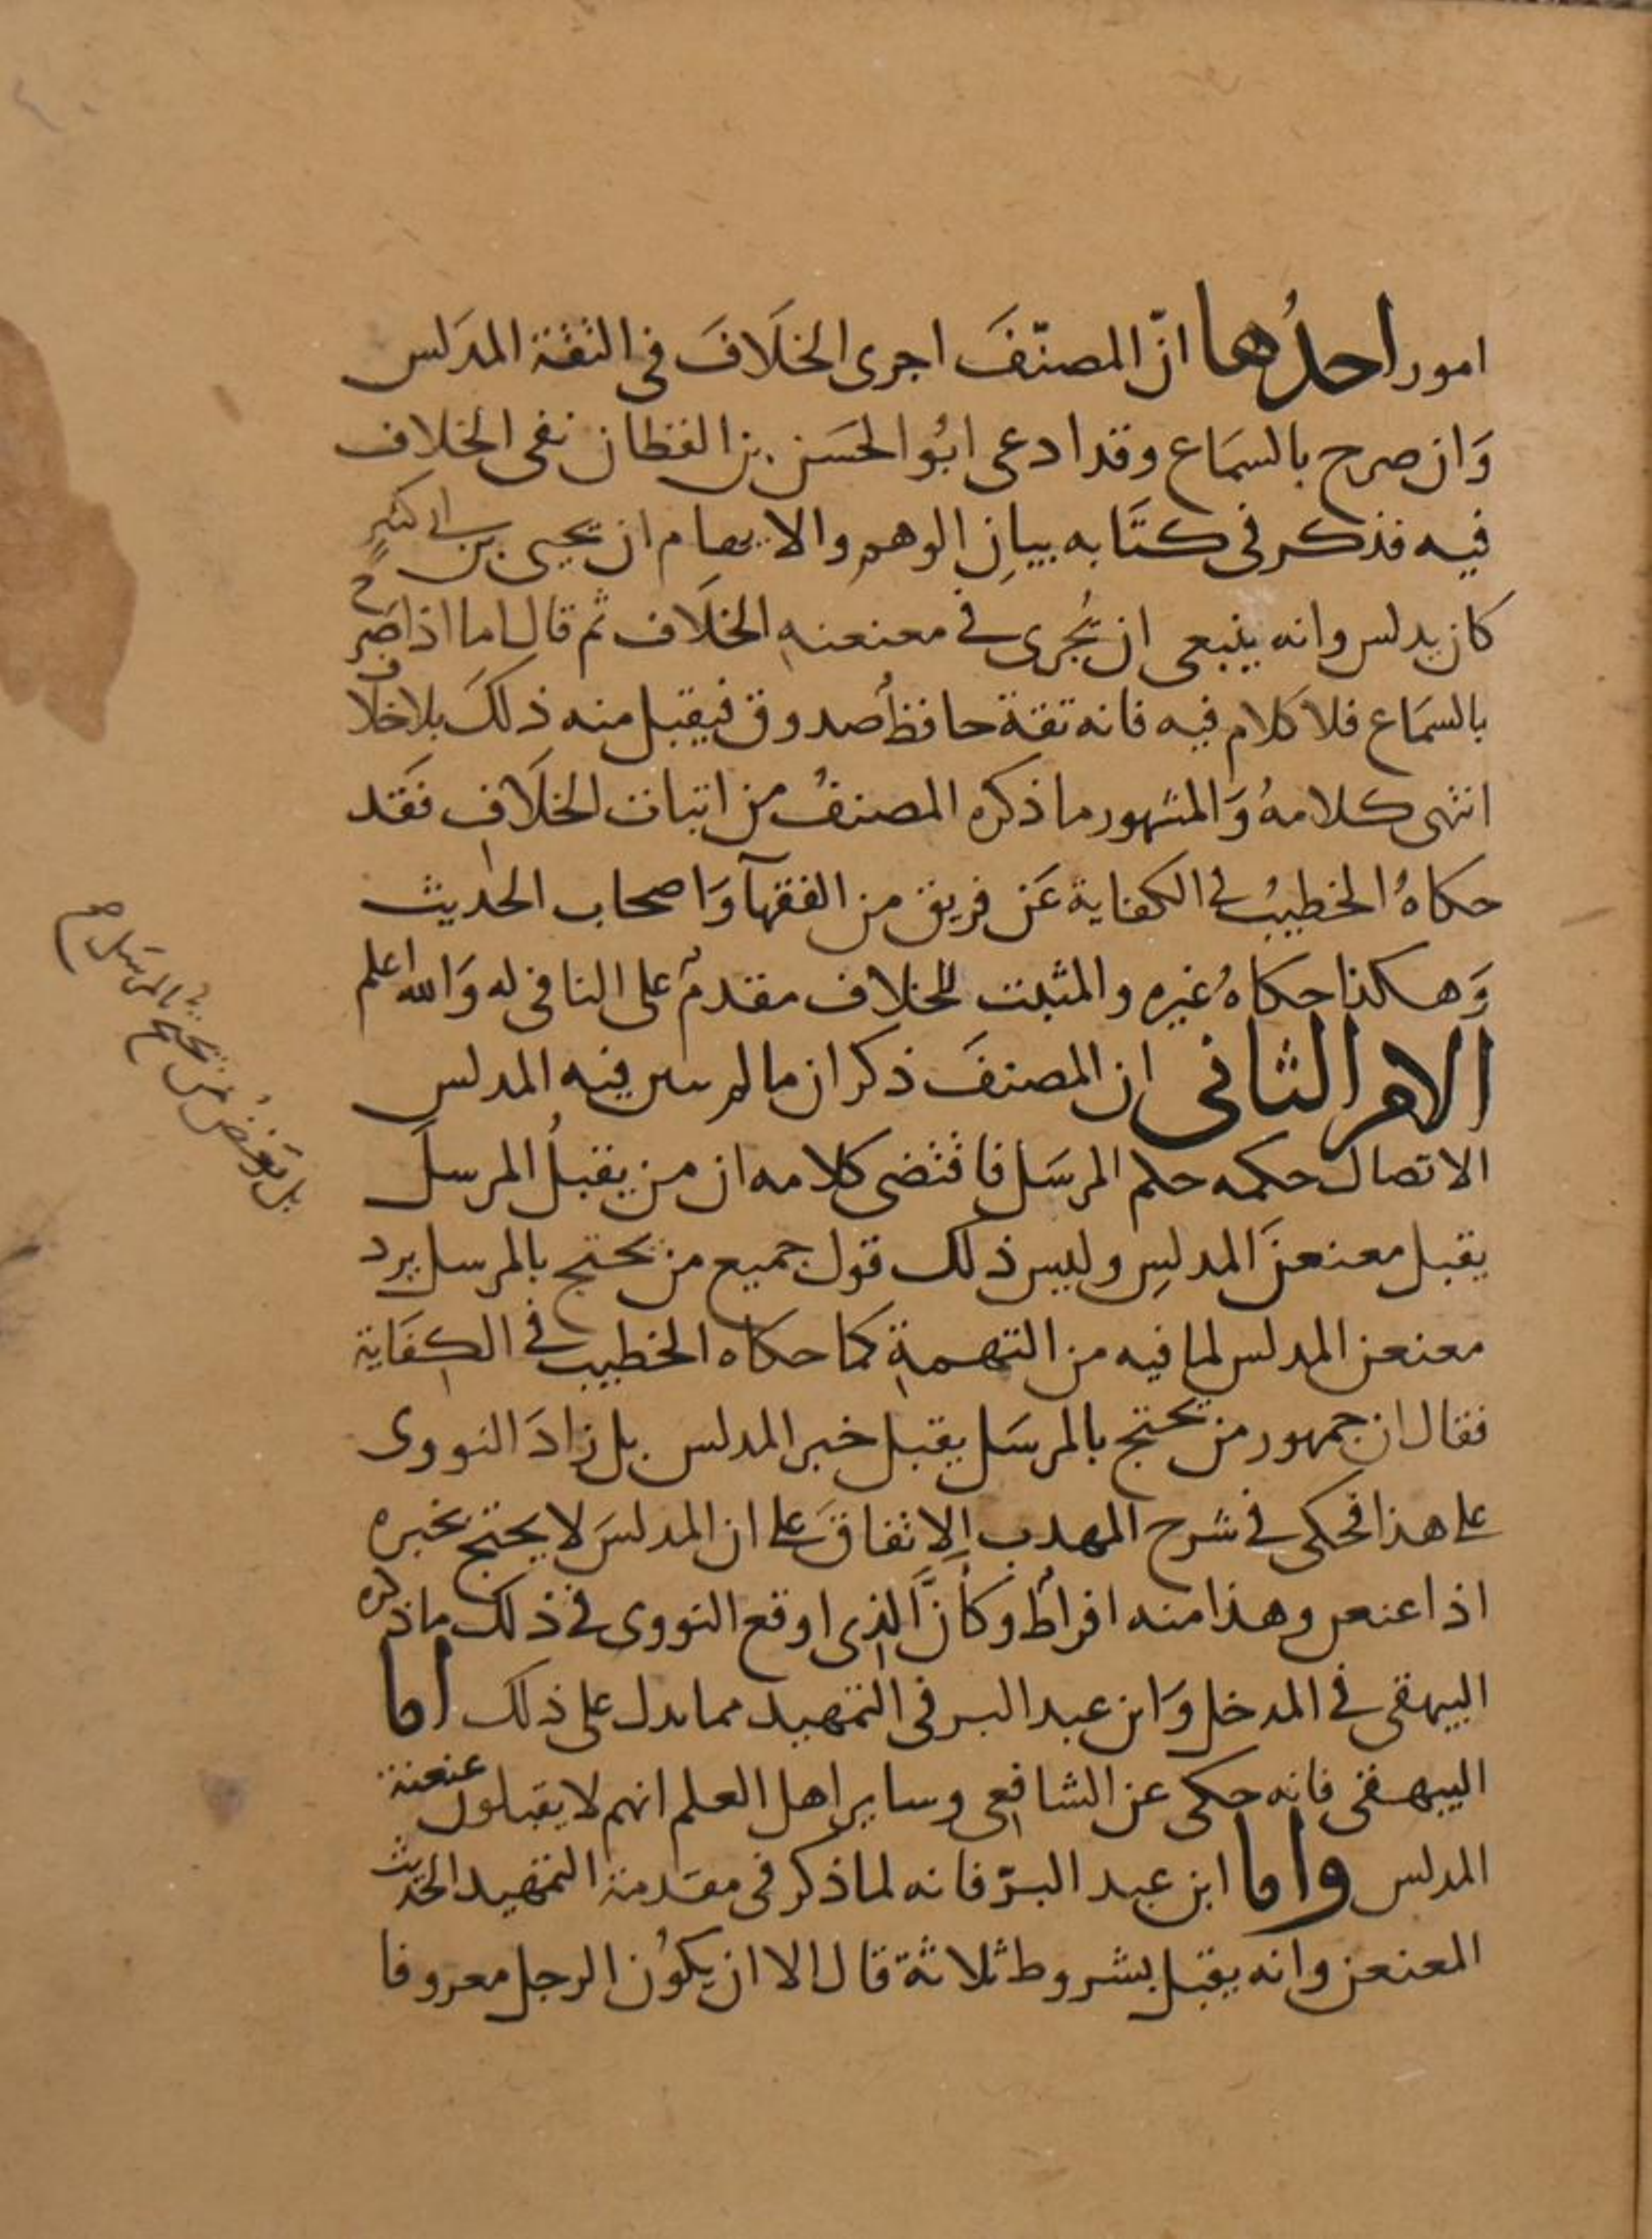 امور احدُها انّ المصنّفَ اجرى الخلَافَ فى الثقة المدَلس
وَان صرح بالسمَاع وقد ادعى ابُو الحسَن بن القطان نفى الخلاف
فيه فذكر فى كتَابه بيانِ الوهم والايهام ان يحيى بن ابى كثيرٍ
كان يدلس وانه ينبغى ان يُجرى فى معنعنهِ الخلَاف ثم قال اما اذا صَرح
بالسمَاع فلا كلام فيه فانه ثقة حافظ صدوق فيقبل منه ذلكَ بلا خلاف
انتهى كلامهُ وَالمشهور ما ذكره المصنفُ من اثبات الخلَافِ فقَد
حكاهُ الخطيبُ فى الكفاية عَن فريق من الفقهآ وَاصحاب الحديث
وَهكذا حكاهُ غيره والمثبت للخلاف مقدمٌ على النافى له وَالله اعلم
الامر الثانى ان المصنفَ ذكر ان ما لم يبين فيه المدلس
الاتصال حكمه حكم المرسَل فاقتضى كلامه ان من يقبلُ المرسلَ
يقبل معنعنَ المدلسِ وليس ذلك قول جميع من يحتج بالمرسل يرد
معنعن المدلس لما فيه من التهمةِ كما حكاه الخطيب فى الكفَاية
فقال ان جمهور من يحتج بالمرسَل يقبل خبر المدلس بل زادَ النووى
على هذا فحكى فى شرح المهذب الاتفاقَ على ان المدلسَ لا يحتج بخبره
اذا عنعن وهذا منه افراطٌ وكأنَّ الذى اوقع النووى فى ذلك ما ذكره
البيهقى فى المدخل وَابن عبد البر فى التمهيد مما يدل على ذلك اما
البيهقى فانه حكى عن الشافعى وساير اهل العلم انهم لا يقبلون عنعنة
المدلس واما ابن عبد البرّ فانه لما ذكر فى مقدمة التمهيد الحديث
المعنعن وانه يقبل بشروط ثلاثة قال الا ان يكوُن الرجل معروفا
بل بَعْضُ من يحتج بالمرسَل صح